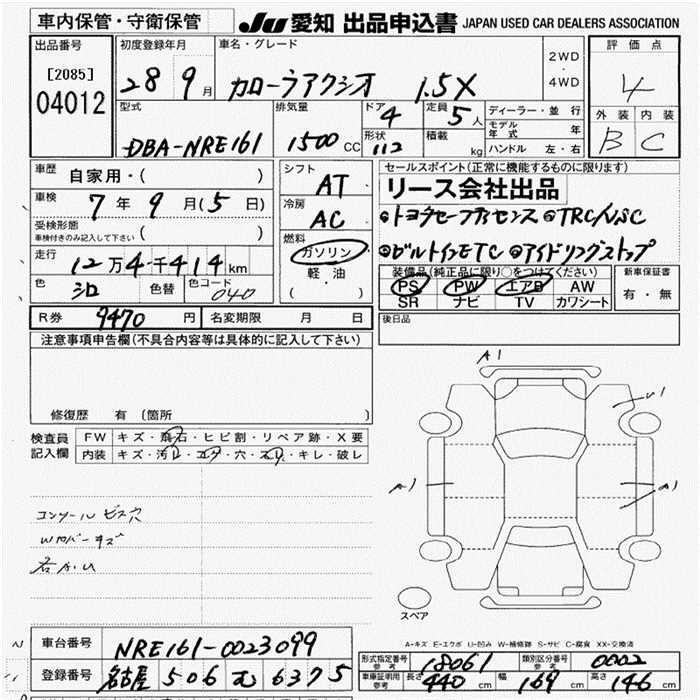 車内保管・守衛保管 JU 愛知 出品申込書 JAPAN USED CAR DEALERS ASSOCIATION
出品番号 初度登録年月 車名・グレード 評価点
[2085] 28 9月 カローラアクシオ 1.5X 2WD・4WD 4
04012 型式 排気量 ドア 4 定員 5人 ディーラー・並行 外装 内装
DBA-NRE161 1500CC 形状 112 積載 kg モデル年式 年 B C
ハンドル 左・右
車歴 自家用・( ) シフト AT セールスポイント(正常に機能するものに限ります)
車検 7年9月(5日) 冷房 AC リース会社出品
受検形態 ( ) ①トヨタセーフティセンス ②TRC/VSC
車検付きのみ記入して下さい 燃料 ガソリン ③ビルトインETC ④アイドリングストップ
走行 12万4千414km 軽・油 装備品(純正品に限り○をつけてください) 新車保証書
色 シロ 色替 色コード 040 ( ) PS PW エアB AW 有・無
SR ナビ TV カワシート
R券 9470円 名変期限 月 日 後日品
注意事項申告欄(不具合内容等は具体的に記入して下さい)
修復歴 有 (箇所 )
検査員 FW キズ・飛石・ヒビ割・リペア跡・X要
記入欄 内装 キズ・汚れ・コゲ・穴・スレ・キレ・破レ
A1
U1
A1 A1
コンソール ビス穴
スペア
A-キズ E-エクボ U-凹み W-補修跡 S-サビ C-腐食 XX-交換済
車台番号 NRE161-0023099
登録番号 名古屋 506 6375
形式指定番号 参考 18061 類別区分番号 参考 0002
車庫証明用 参考 長さ 440cm 幅 169cm 高さ 146cm